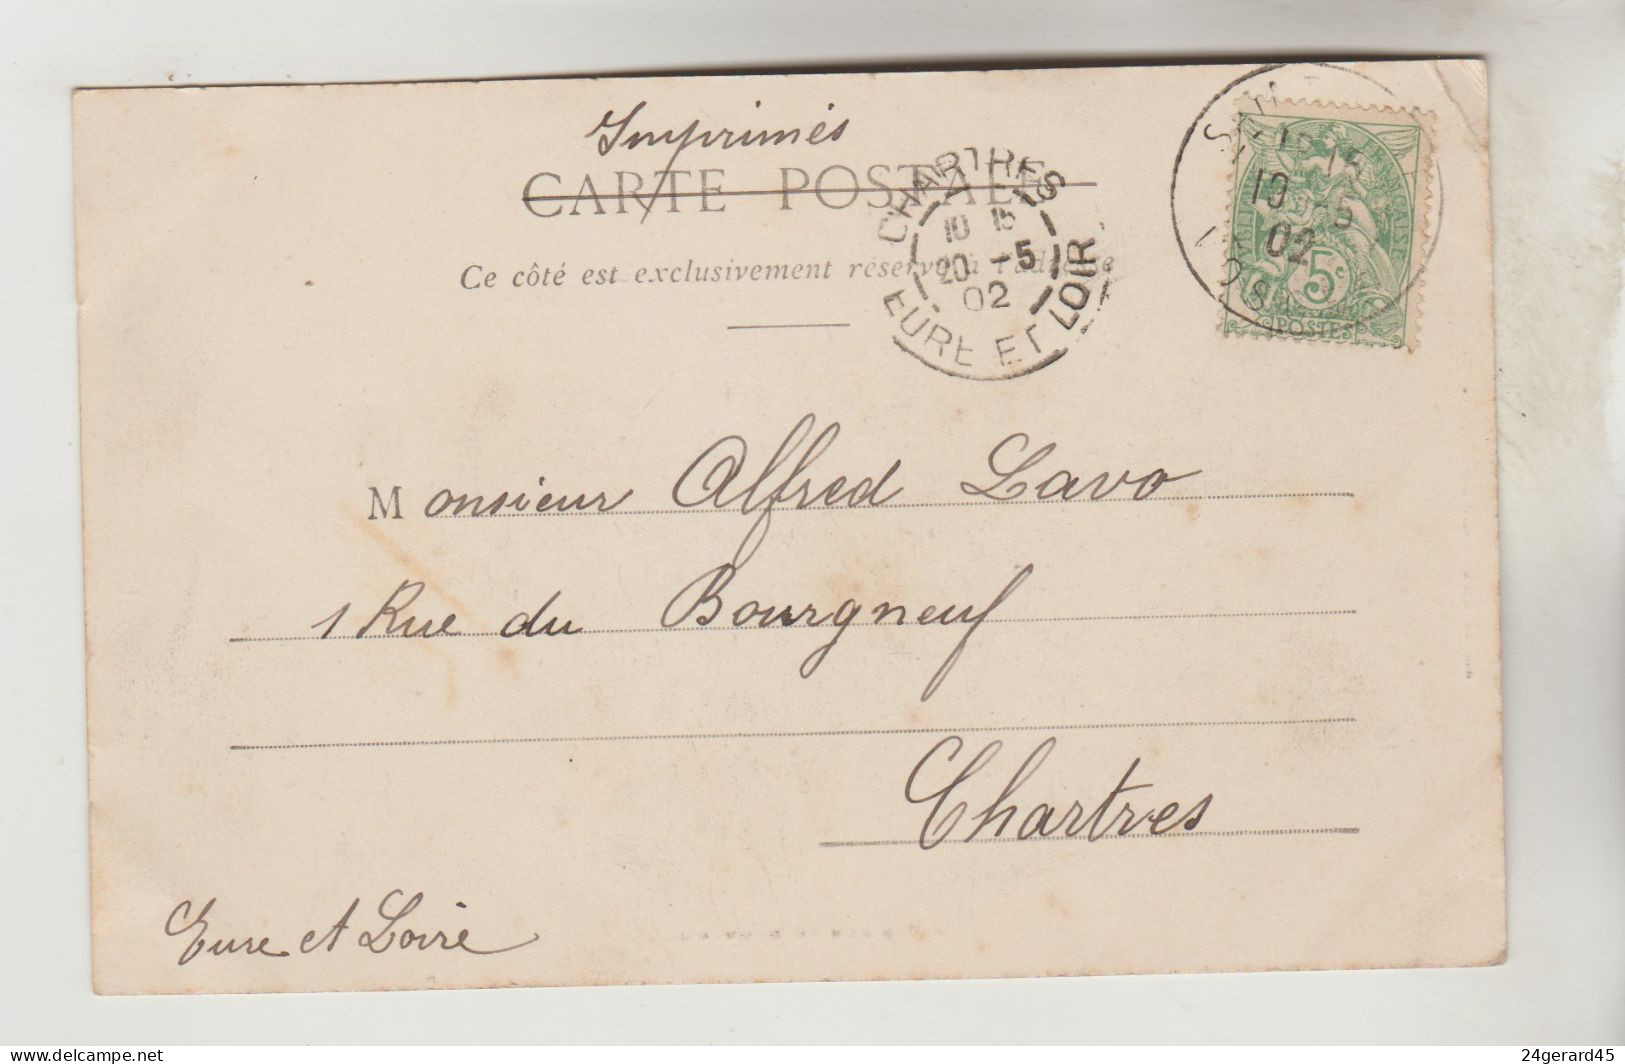 Imprimés
CARTE POSTALE
Ce côté est exclusivement réservé à l'adresse
CHARTRES
10 15
20 -5
02
EURE ET LOIR
19 -5
02
5c
POSTES
Monsieur Alfred Lavo
1 Rue du Bourgneuf
Chartres
Eure et Loire
24gerard45